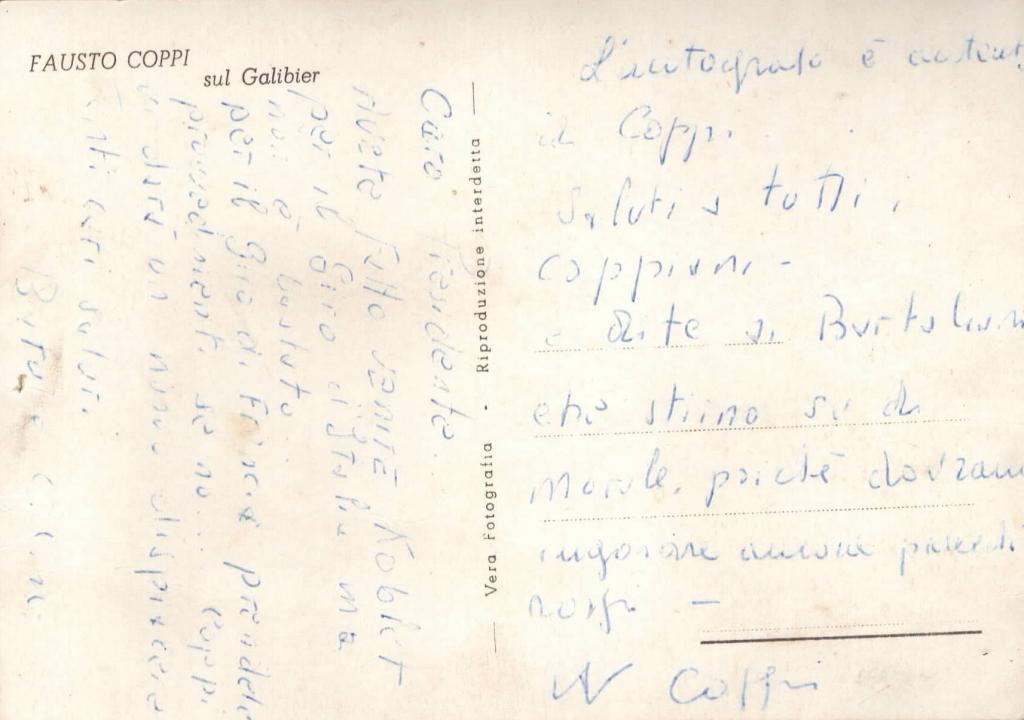 FAUSTO COPPI
sul Galibier
Caro Presidente.
Avete fatto venire Koblet
per il Giro d'Italia ma
non è bastato.
per il Giro di Francia prendete
provvedimenti se no... Coppi
vi darà un nuovo dispiacere
Tanti cari saluti.
Vera Fotografia - Riproduzione interdetta
L'autografo è autent
di Coppi.
Saluti a tutti i
coppiani -
e dite ai Bartaliani
che stiino su di
morale, poichè dovranno
ingoiare ancora parecchi
rospi -
W Coppi